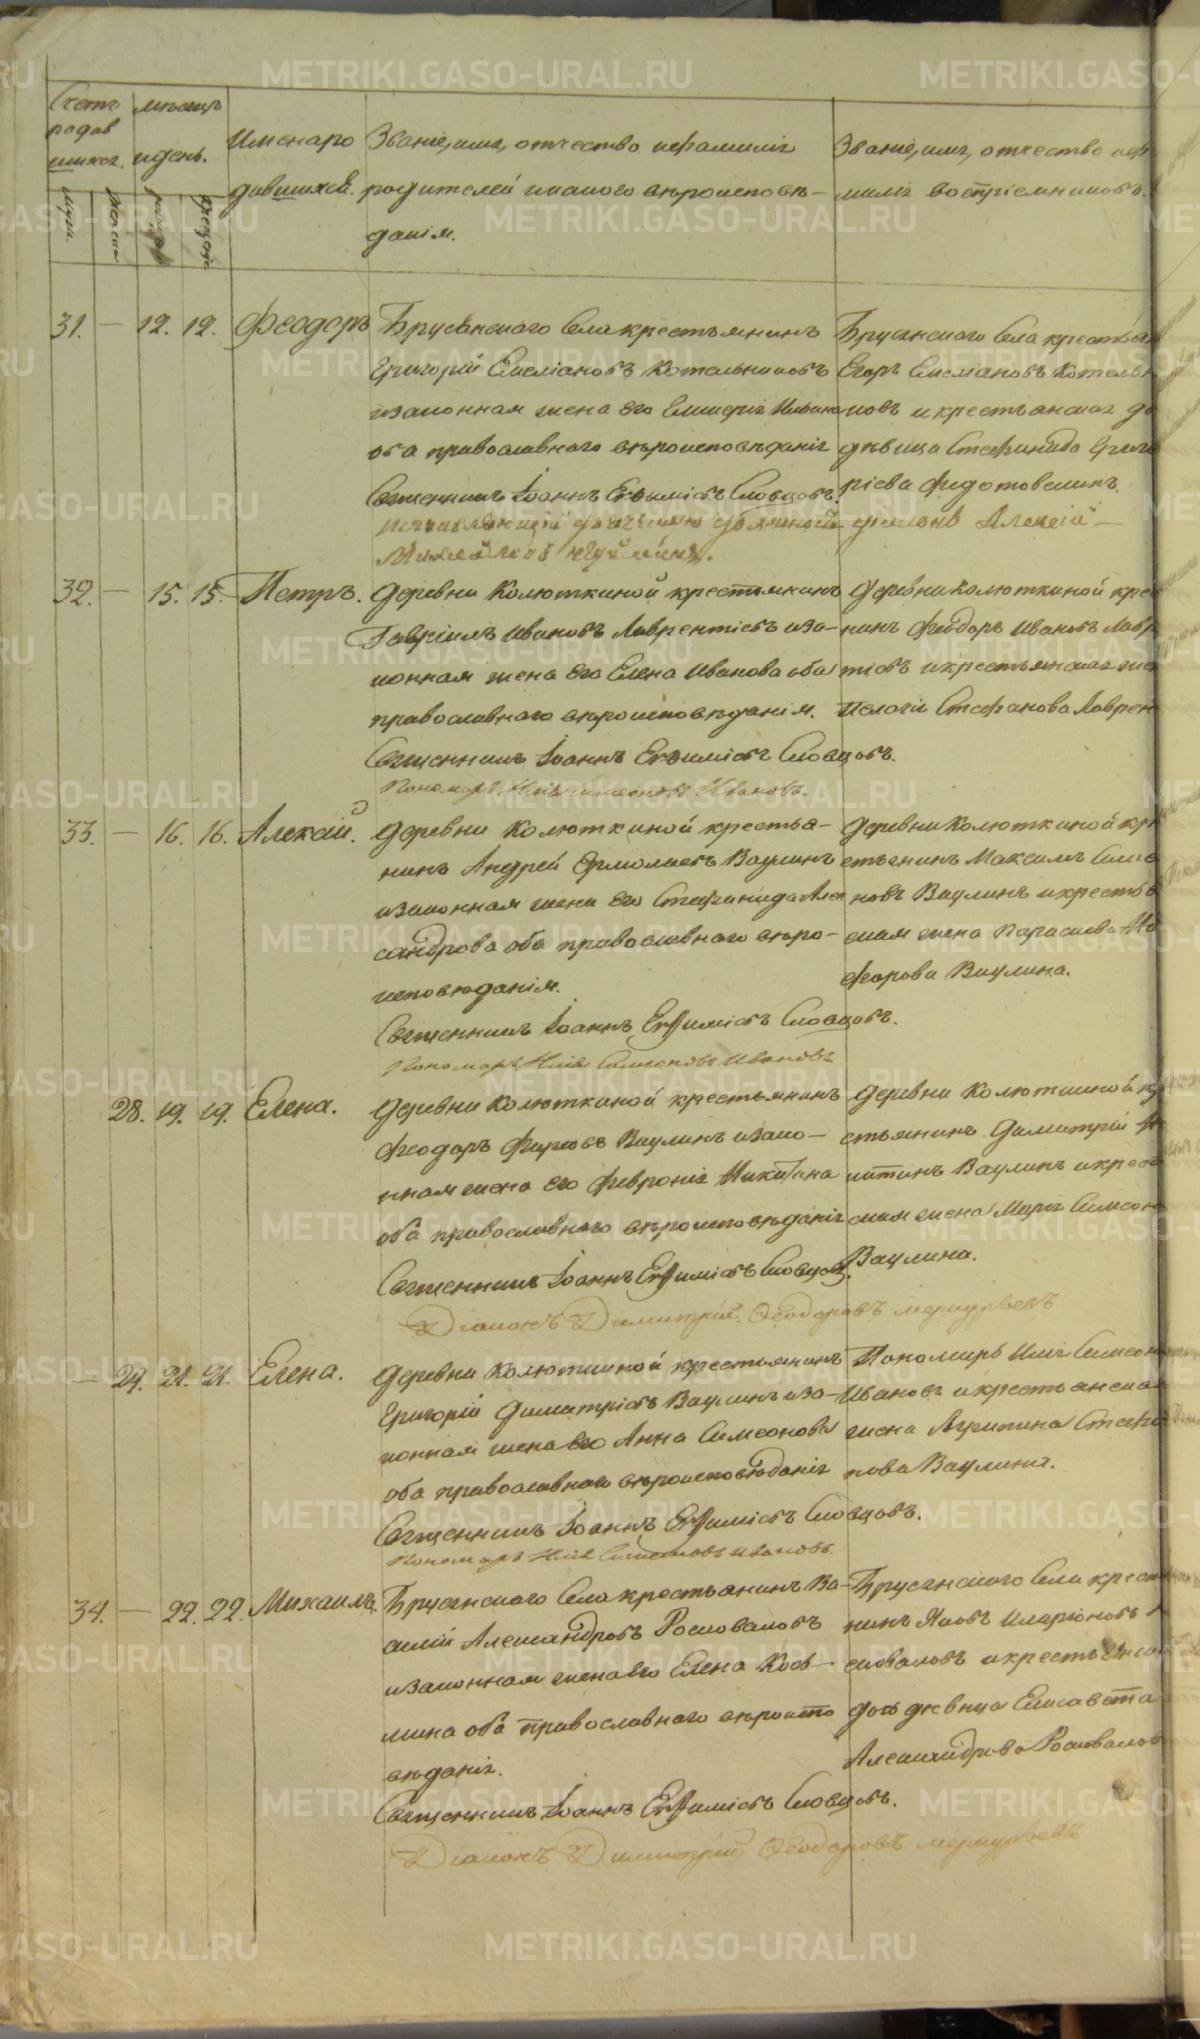 Счетъ родив шихся.
мужеска
женска
мѣсяцъ и день.
рожденія
крещенія
Имена ро дившихся.
Званіе, имя, отчество и фамилія
родителей и какого вѣроисповѣ-
данія.
Званіе, имя, отчество и фа
милія воспріемниковъ.
31. — 12. 12. Феодоръ
Брусянского Села крестьянинъ
Григорій Емеліановъ Котельниковъ
и законная жена его Гликерія Иванова
оба православнаго вѣроисповѣданія
Священникъ Іоаннъ Евѳиміевъ Словцовъ.
Исправляющій должность діакона Алексій
Брусянского Села крестьян
Егоръ Емеліановъ Котельн
ковъ и крестьянская до
дѣвица Стефанида Григо
рieва Федотовскихъ.
32. — 15. 15. Петръ.
Деревни Колюткиной крестьянинъ
Гавріилъ Ивановъ Лаврентіевъ и за-
конная жена его Елена Иванова оба
православнаго вѣроисповѣданія.
Священникъ Іоаннъ Евѳиміевъ Словцовъ.
Пономарь Илія Симеоновъ Ивановъ.
Деревни Колюткиной крес
нинъ Феодоръ Ивановъ Лавр
тіевъ и крестьянская жен
Пелагія Стефанова Лаврен
33. — 16. 16. Алексій.
Деревни Колюткиной крестья-
нинъ Андрей Ермолаевъ Ваулинъ
и законная жена его Стефанида Алек
сандрова оба православнаго вѣро-
исповѣданія.
Священникъ Іоаннъ Евѳиміевъ Словцовъ.
Пономарь Илія Симеоновъ Ивановъ
Деревни Колюткиной кре
стьянинъ Максимъ Симео
новъ Ваулинъ и крестьян
ская жена Параскева Ни
Ваулина.
28. 19. 19. Елена.
Деревни Колюткиной крестьянинъ
Феодоръ Фирсовъ Ваулинъ и зако-
нная жена его Февронія Никитина
оба православнаго вѣроисповѣданія
Священникъ Іоаннъ Евѳиміевъ Словцовъ.
Діаконъ Димитрій Ѳеодоровъ Меркурьевъ
Деревни Колюткиной кре
стьянинъ Димитрій Ни
китинъ Ваулинъ и крестьян
ская жена Марія Симеон
Ваулина.
— 29. 21. 21. Елена.
Деревни Колюткиной крестьянинъ
Григорій Димитріевъ Ваулинъ и за-
конная жена его Анна Симеонова
оба православнаго вѣроисповѣданія
Священникъ Іоаннъ Евѳиміевъ Словцовъ.
Пономарь Илія Симеоновъ Ивановъ.
Пономарь Илія Симеон
Ивановъ и крестьянская
жена Агрипина Стефа
нова Ваулина.
34. — 22. 22. Михаилъ
Брусянского Села крестьянинъ Ва-
силій Александровъ Росковаловъ
и законная жена его Елена Косм-
мина оба православнаго вѣроиспо
вѣданія.
Священникъ Іоаннъ Евѳиміевъ Словцовъ.
Діаконъ Димитрій Ѳеодоровъ Меркурьевъ
Брусянского Села кресть
нинъ Яковъ Иларіоновъ
сковаловъ и крестьянска
дочь дѣвица Елисавета
Александрова Росковалов
METRIKI.GASO-URAL.RU